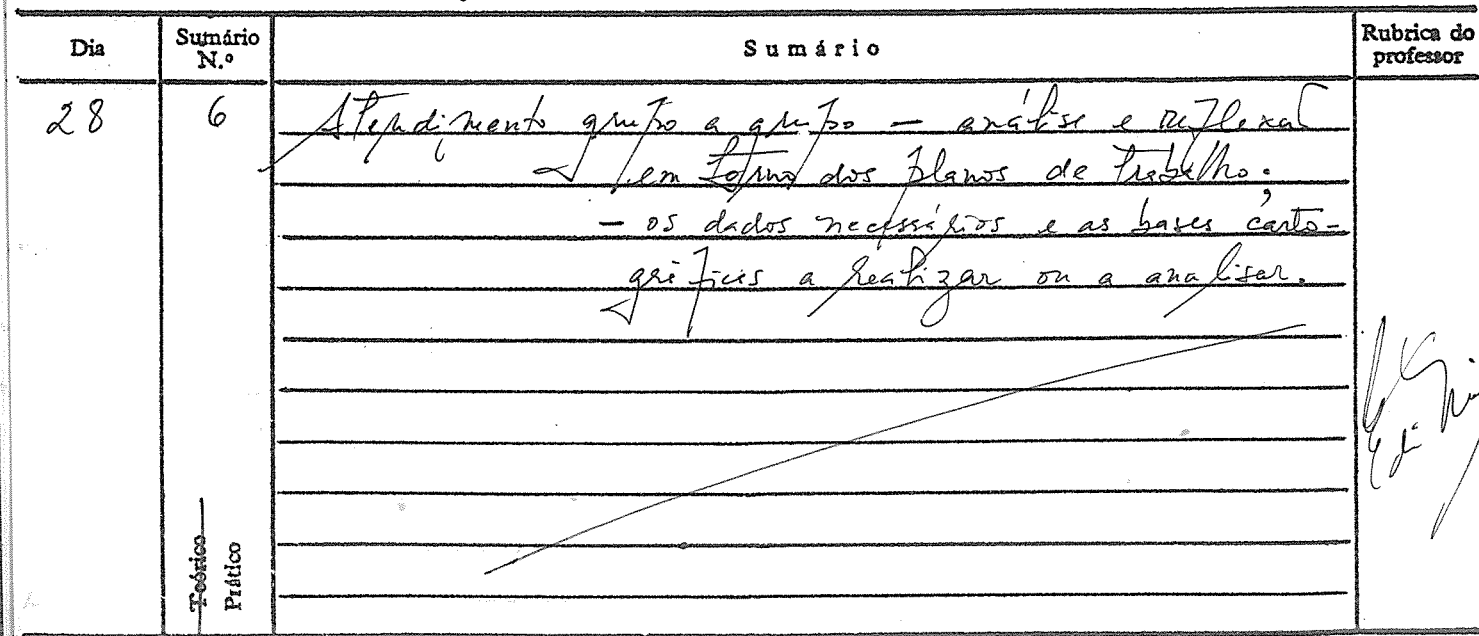 Dia
Sumário N.º
Sumário
Rubrica do professor
28
6
Atendimento grupo a grupo — análise e reflexão
em torno dos planos de trabalho:
— os dados necessários e as bases carto-
gráficas a realizar ou a analisar.
Teórico
Prático